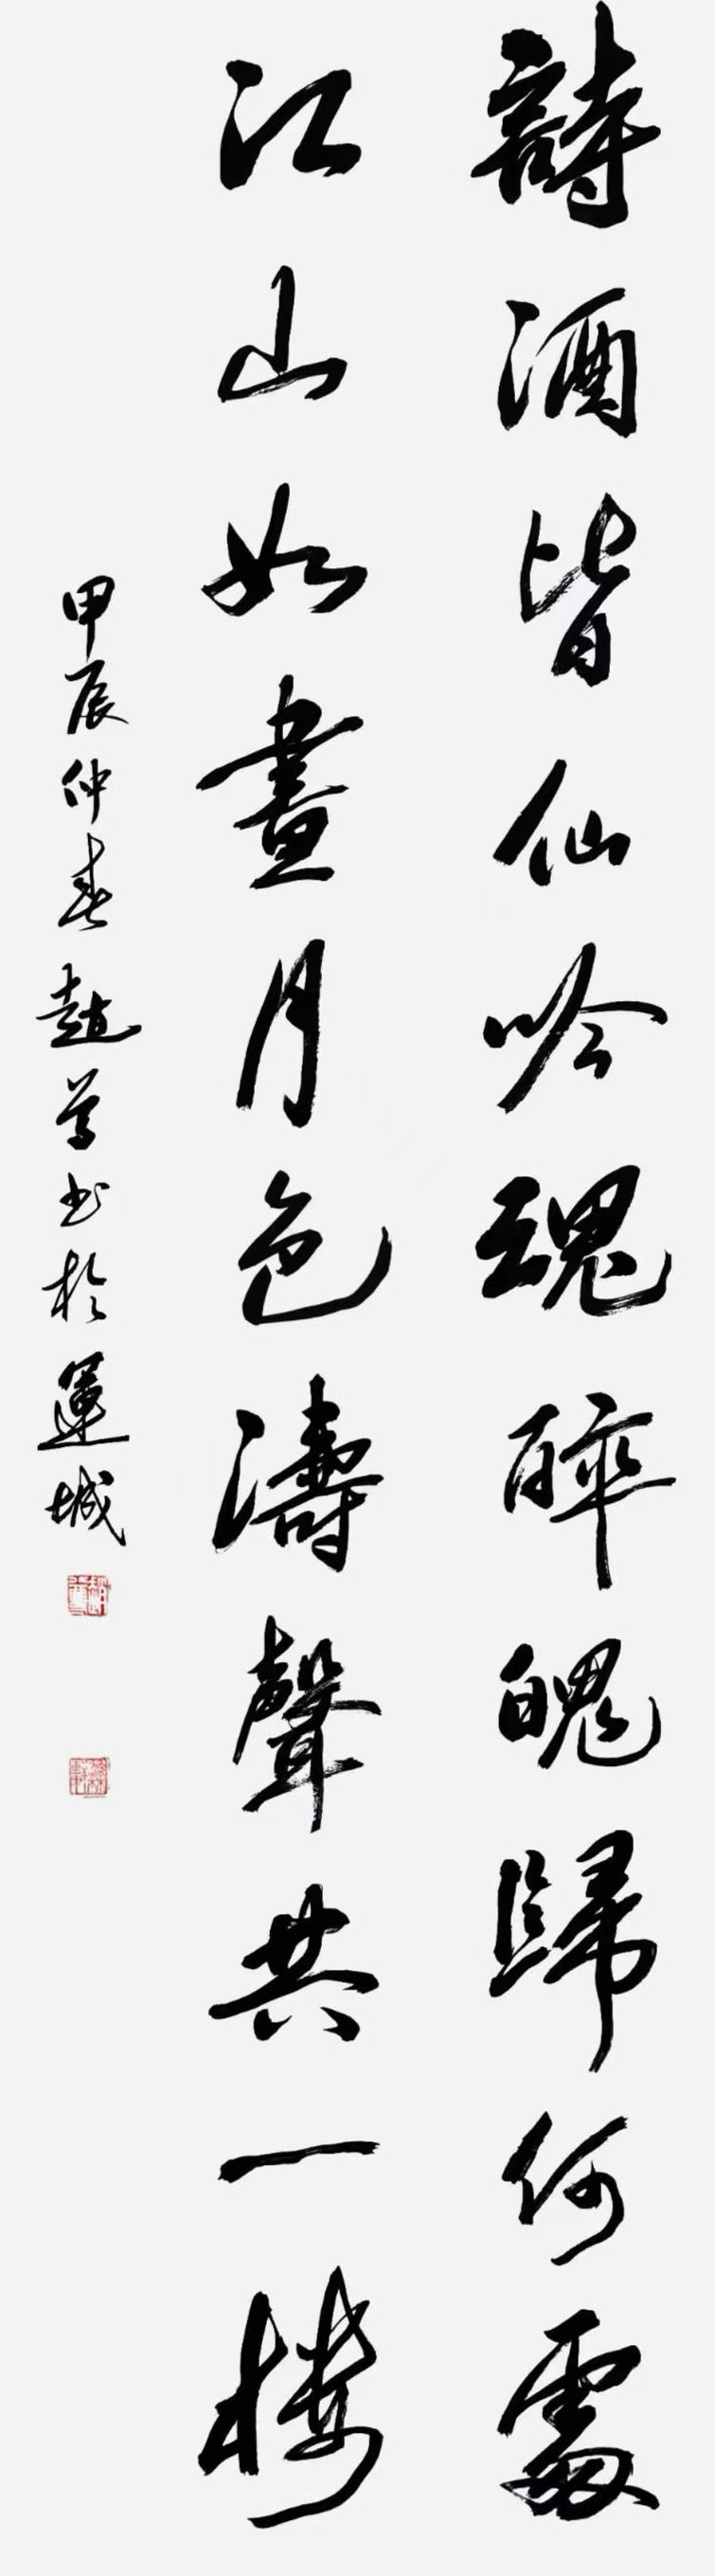 詩酒皆仙吟魂醉魄歸何處
江山如畫月色濤聲共一樓
甲辰仲春趙 書於運城